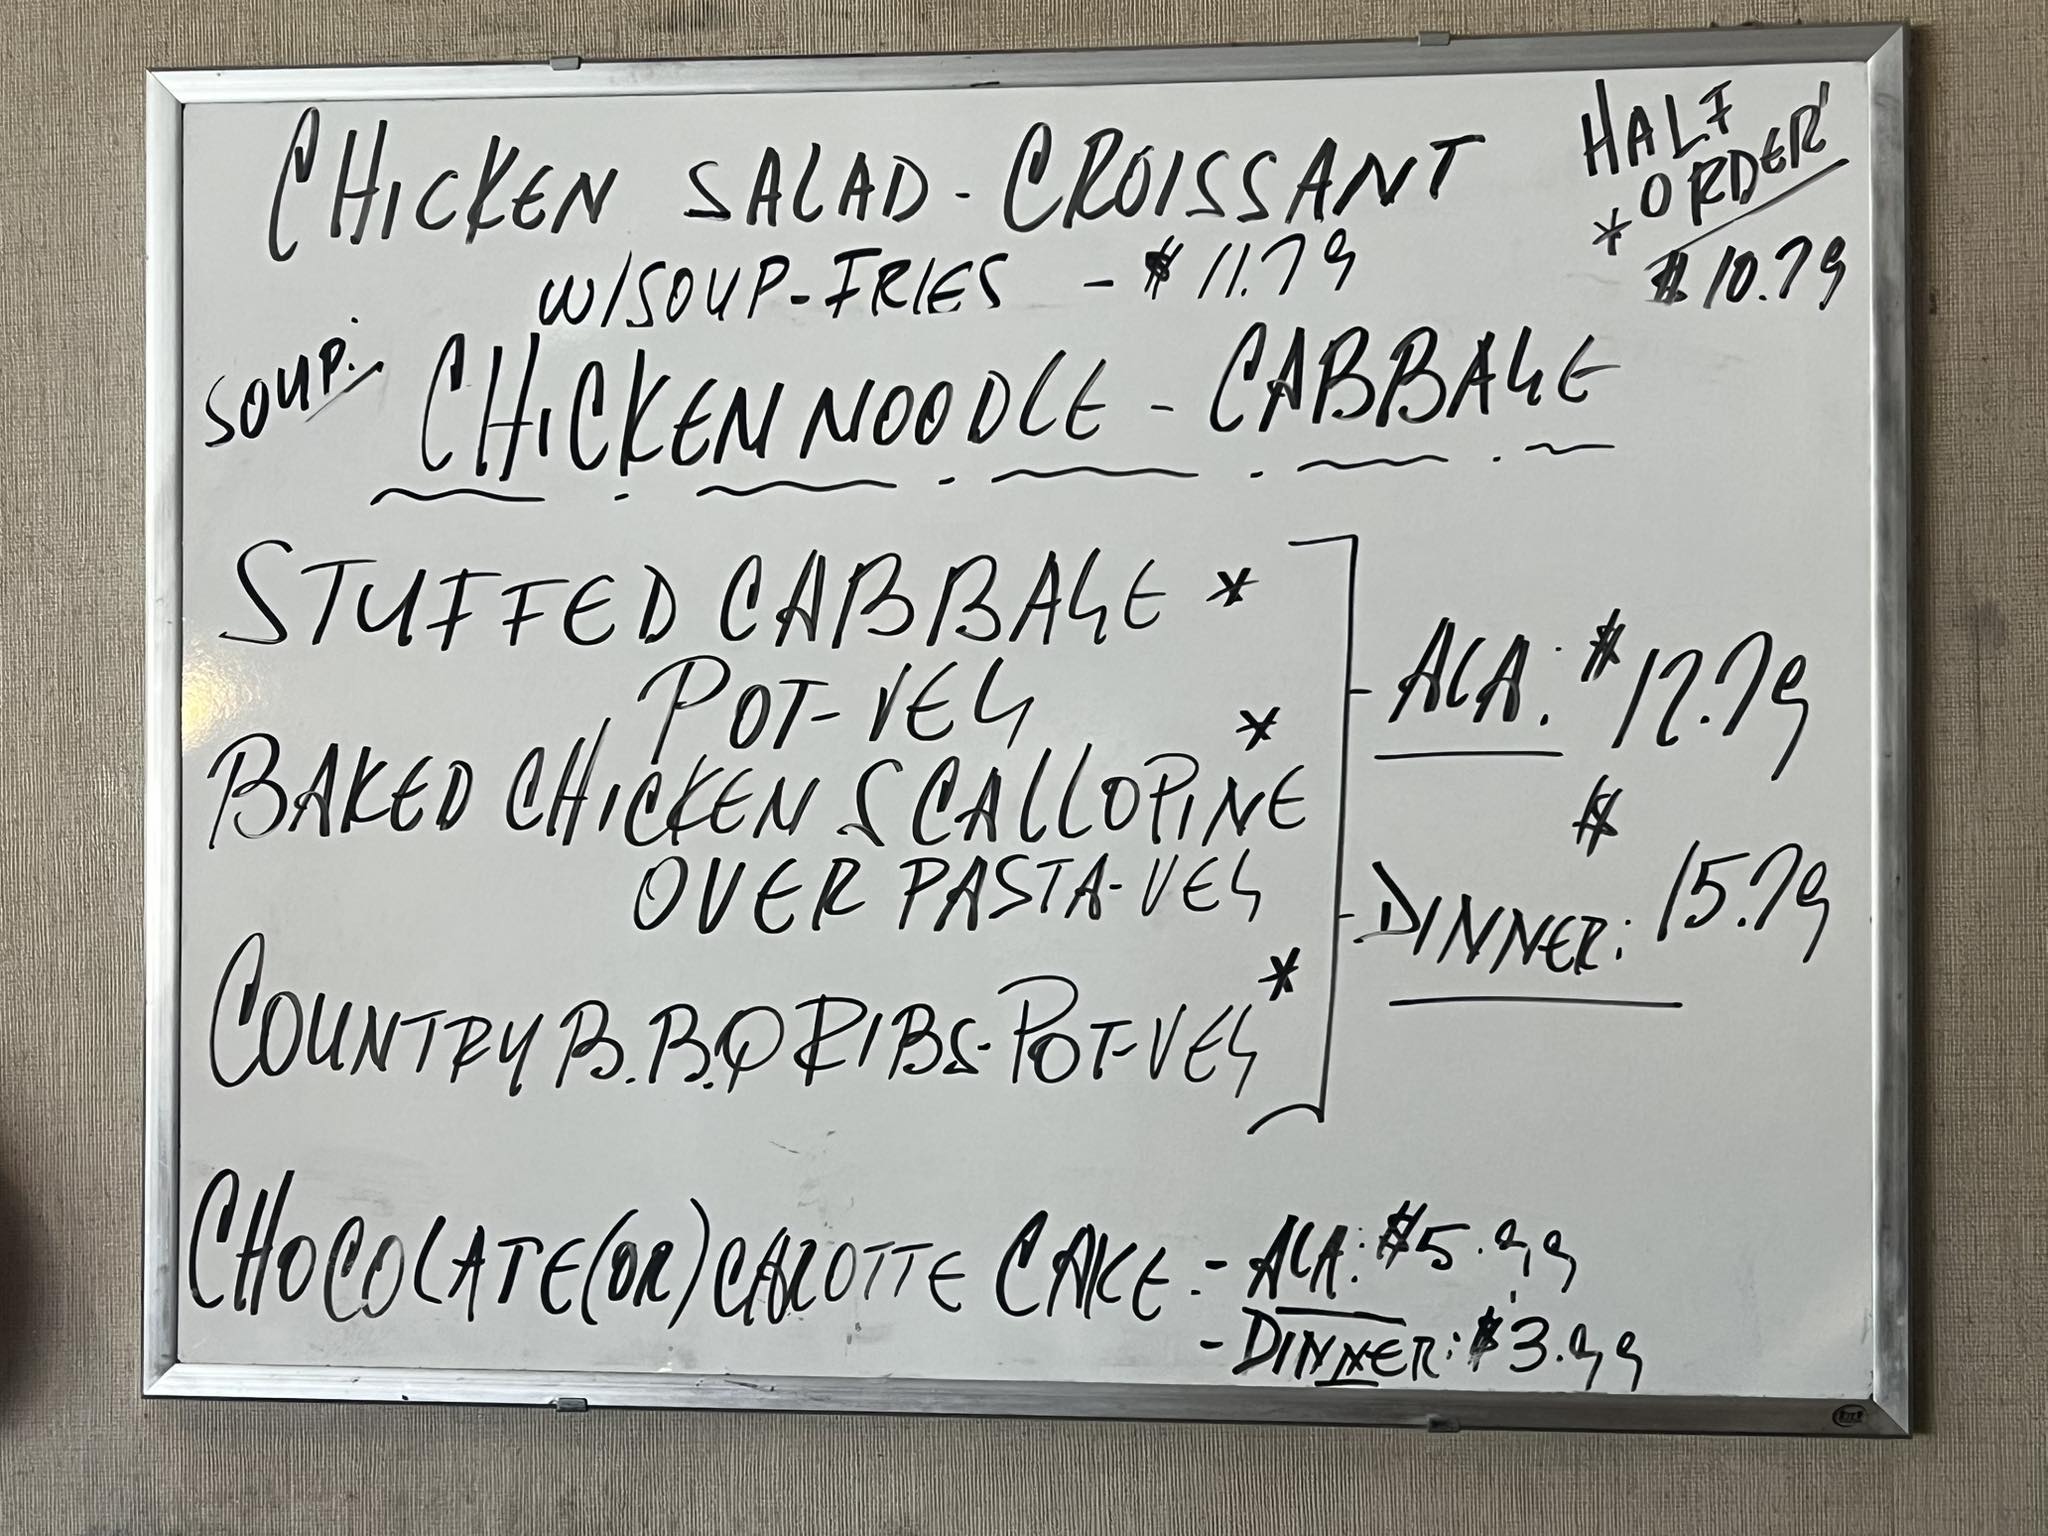 CHICKEN SALAD - CROISSANT
W/SOUP-FRIES - $11.79
HALF
* ORDER
$10.79
SOUP:
CHICKEN NOODLE - CABBAGE
STUFFED CABBAGE *
POT-VEG
BAKED CHICKEN SCALLOPINE *
OVER PASTA-VEG
COUNTRY B.B.Q RIBS-POT-VEG *
- ALA: $12.79
- DINNER: $15.79
CHOCOLATE (OR) CAROTTE CAKE: - ALA: $5.99
- DINNER: $3.99